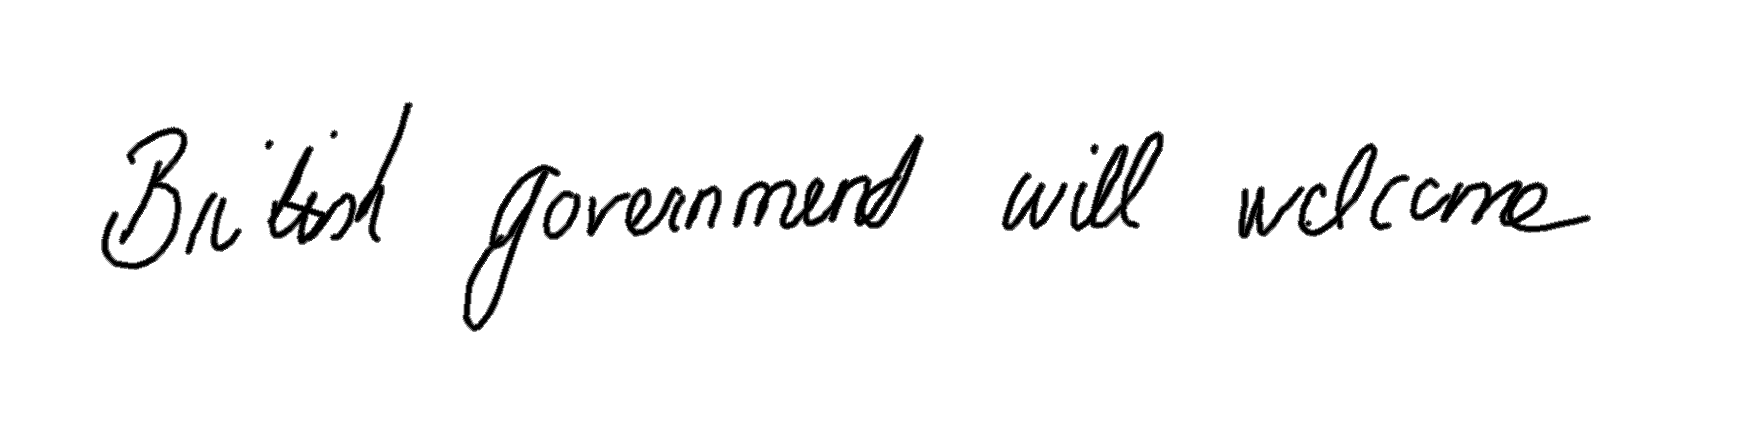 British government will welcome